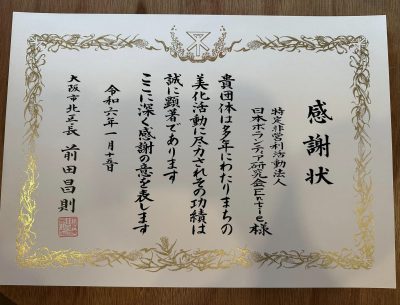 感謝状
特定非営利活動法人
日本ボランティア研究会Entie様
貴団体は多年にわたりまちの
美化活動に尽力されその功績は
誠に顕著であります
ここに深く感謝の意を表します
令和六年一月十一日
大阪市北区長 前田昌則